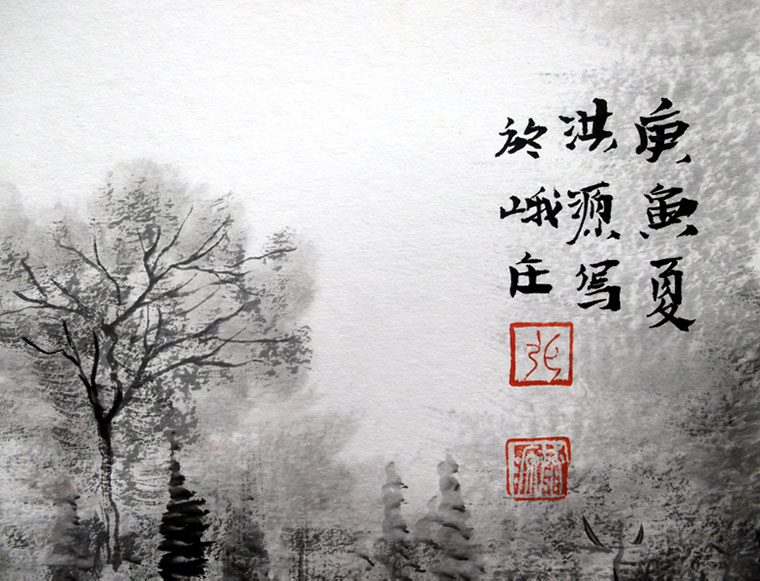 庚寅夏
洪源写
於峨庄
张